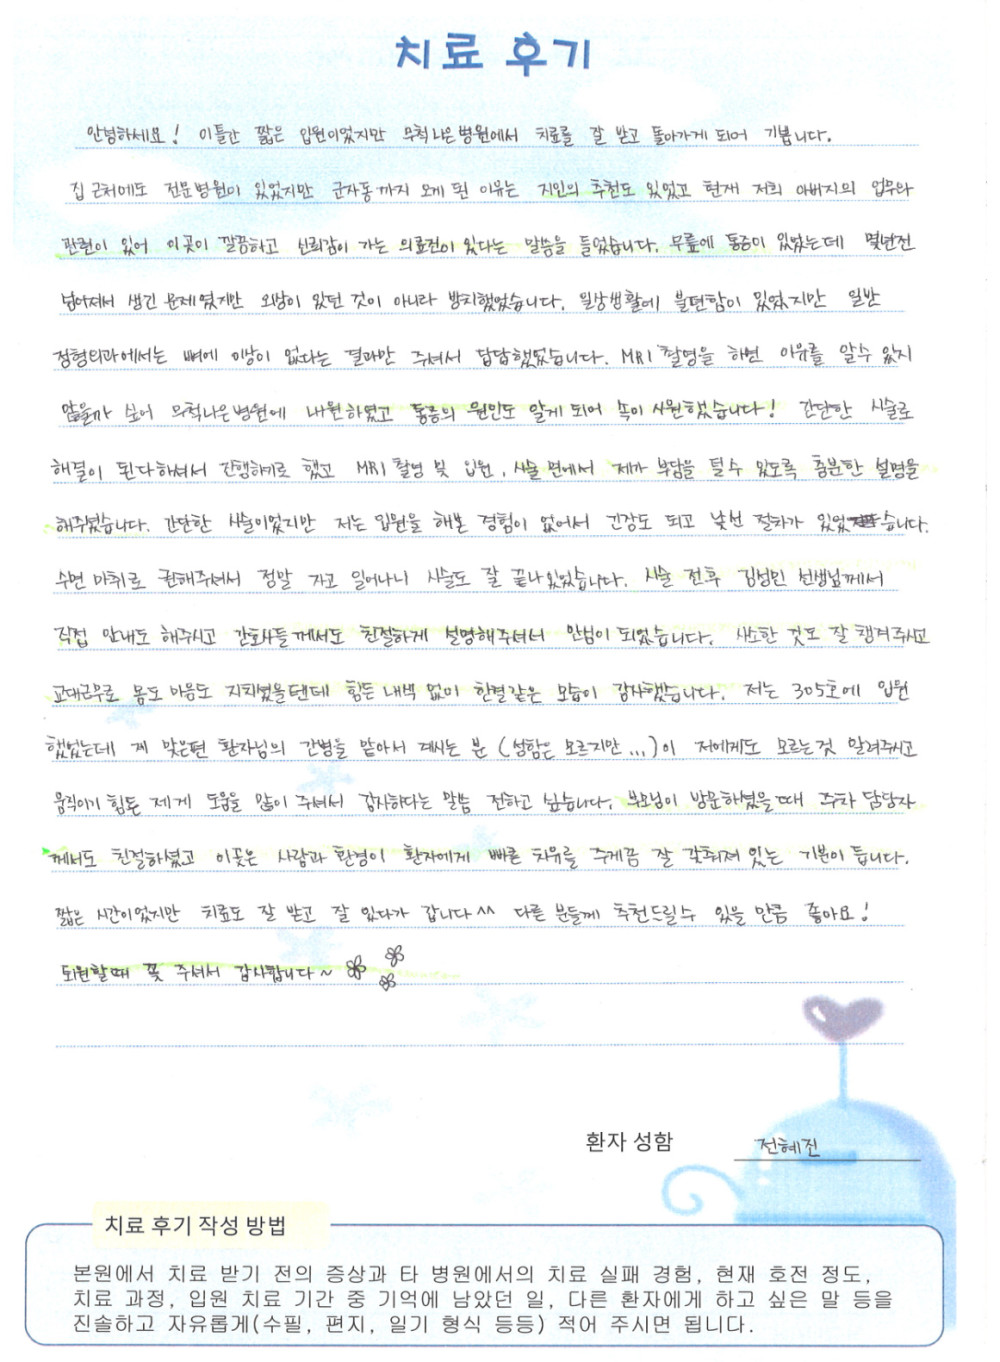 치료 후기
안녕하세요! 이틀간 짧은 입원이었지만 무척나은병원에서 치료를 잘 받고 돌아가게 되어 기쁩니다.
집 근처에도 전문병원이 있었지만 군자동까지 오게 된 이유는 지인의 추천도 있었고 현재 저희 아버지의 업무와
관련이 있어 이곳이 깔끔하고 신뢰감이 가는 의료진이 있다는 말씀을 들었습니다. 무릎에 통증이 있었는데 몇년전
넘어져서 생긴 문제였지만 외상이 있던 것이 아니라 방치했었습니다. 일상생활에 불편함이 있었지만 일반
정형외과에서는 뼈에 이상이 없다는 결과만 주셔서 답답했었습니다. MRI 촬영을 하면 이유를 알수 있지
않을까 싶어 무척나은병원에 내원하였고 통증의 원인도 알게 되어 속이 시원했습니다! 간단한 시술로
해결이 된다하셔서 진행하기로 했고 MRI 촬영 및 입원, 시술 면에서 제가 부담을 덜 수 있도록 충분한 설명을
해주셨습니다. 간단한 시술이었지만 저는 입원을 해본 경험이 없어서 긴장도 되고 낯선 절차가 있었습니다.
수면 마취로 권해주셔서 정말 자고 일어나니 시술도 잘 끝나있었습니다. 시술 전후 김성민 선생님께서
직접 안내도 해주시고 간호사들께서도 친절하게 설명해주셔서 안심이 되었습니다. 사소한 것도 잘 챙겨주시고
교대근무로 몸도 마음도 지치셨을텐데 힘든 내색 없이 한결같은 모습이 감사했습니다. 저는 305호에 입원
했었는데 제 맞은편 환자님의 간병을 맡아서 계시는 분 (성함은 모르지만...)이 저에게도 모르는것 알려주시고
움직이기 힘든 제게 도움을 많이 주셔서 감사하다는 말씀 전하고 싶습니다. 부모님이 방문하셨을때 주차 담당자
께서도 친절하셨고 이곳은 사람과 환경이 환자에게 빠른 치유를 주게끔 잘 갖춰져 있는 기분이 듭니다.
짧은 시간이었지만 치료도 잘 받고 잘 있다가 갑니다^^ 다른 분들께 추천드릴수 있을 만큼 좋아요!
퇴원할때 꽃 주셔서 감사합니다~
환자 성함 전혜진
치료 후기 작성 방법
본원에서 치료 받기 전의 증상과 타 병원에서의 치료 실패 경험, 현재 호전 정도,
치료 과정, 입원 치료 기간 중 기억에 남았던 일, 다른 환자에게 하고 싶은 말 등을
진솔하고 자유롭게(수필, 편지, 일기 형식 등등) 적어 주시면 됩니다.